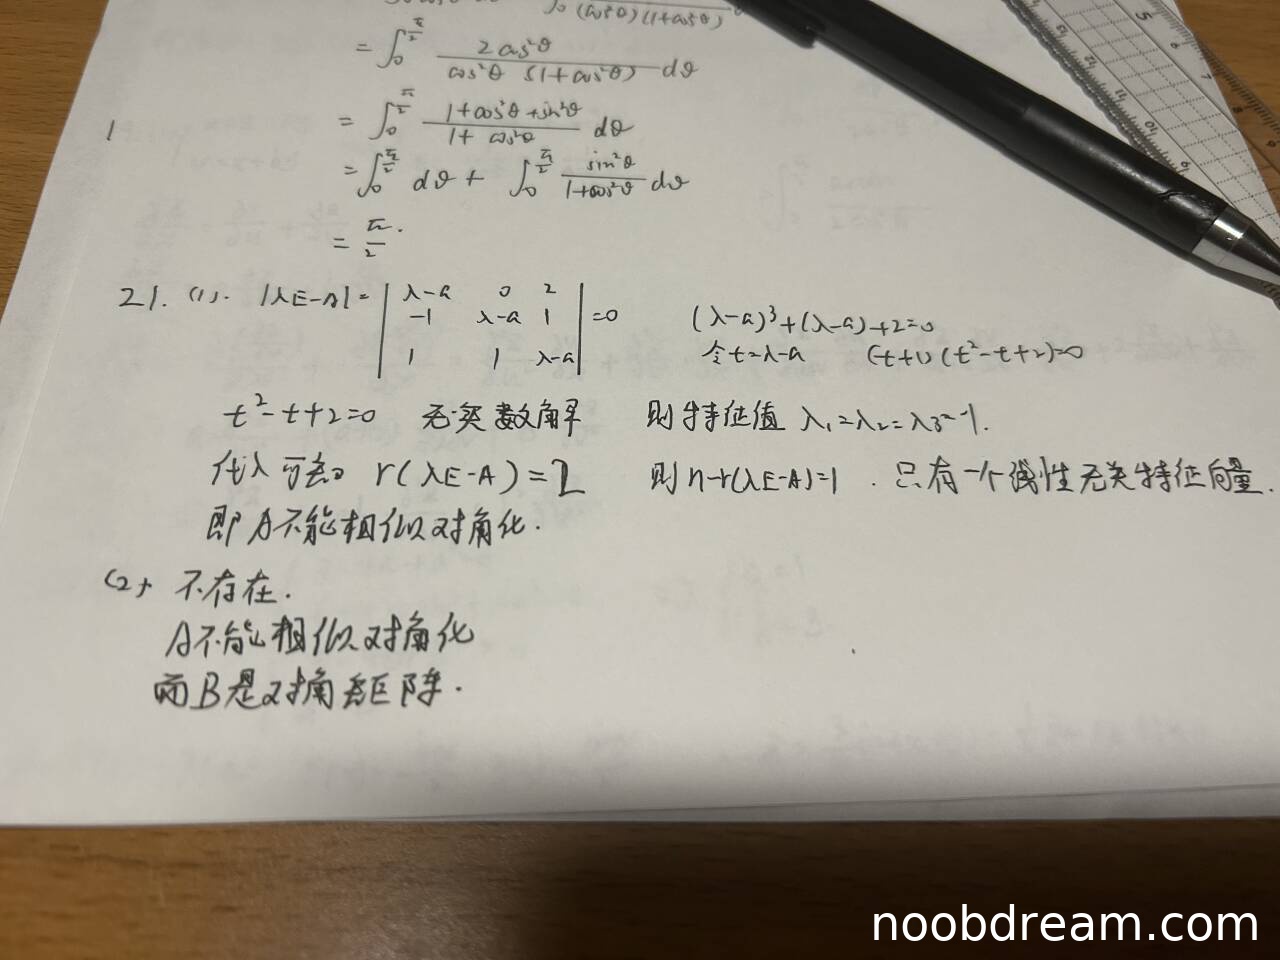 (cos²θ)(1+cos²θ)
= ∫₀^{π/2} 2cos²θ / cos²θ (1+cos²θ) dθ
1
= ∫₀^{π/2} 1+cos²θ+sin²θ / 1+cos²θ dθ
= ∫₀^{π/2} dθ + ∫₀^{π/2} sin²θ / 1+cos²θ dθ
= π/2.
21. (1). |λE-A| = | λ-a 0 2 |
| -1 λ-a 1 | =0 (λ-a)³+(λ-a)+2=0
| 1 1 λ-a | 令t=λ-a (t+1)(t²-t+2)=0
t²-t+2=0 无实数解 则特征值 λ₁=λ₂=λ₃=-1.
代λ可知 r(λE-A)=2 则n-r(λE-A)=1. 只有一个线性无关特征向量.
即A不能相似对角化.
(2) 不存在.
A不能相似对角化
而B是对角矩阵.
noobdream.com